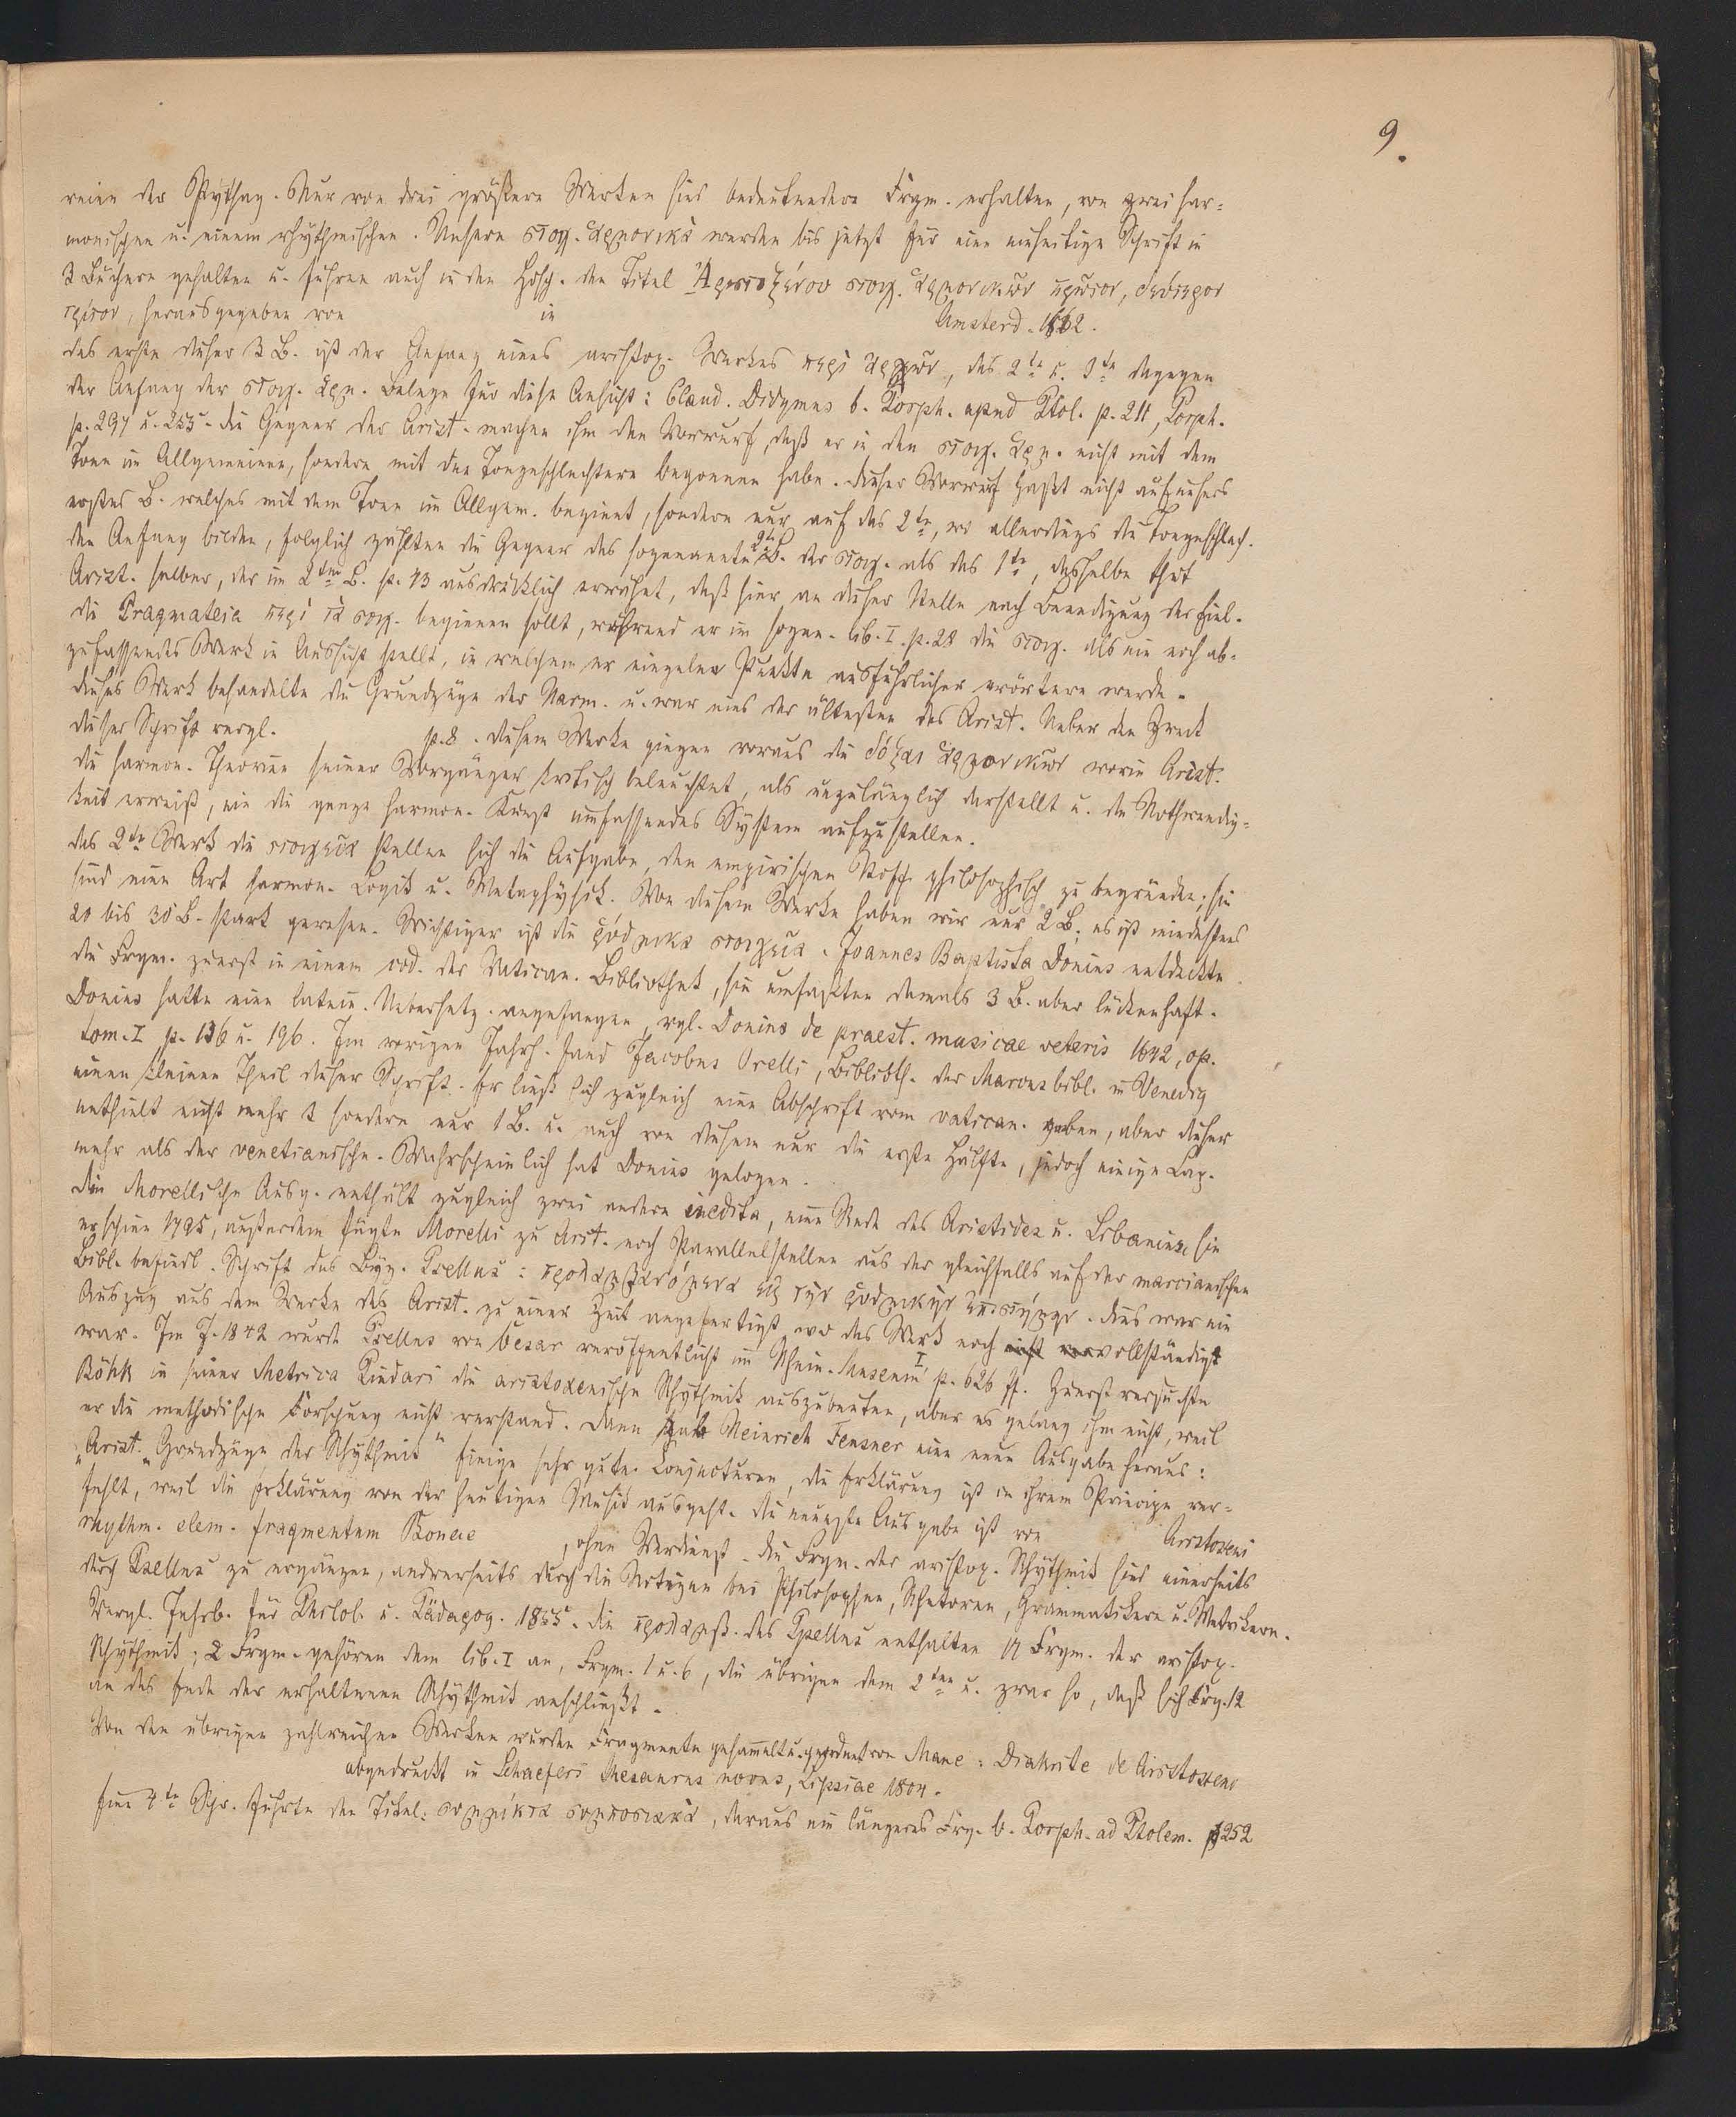 9.
reien der Pythag. Nur von drei größern Werken sind bedeutendere Frgm. erhalten, von zwei har-
monischen u. einem rhythmischen. Unsere στοιχ. ἁρμονικὰ werden bis jetzt für eine einheitige Schrift in
3 Büchern gehalten u. führen auch in den Hdsch. den Titel Ἀριστοξένου στοιχ. ἁρμονικῶν πρῶτον, δεύτερον
τρίτον, herausgegeben von in Amsterd. 1652.
das erste dieser 3 B. ist der Anfang eines aristox. Werkes περὶ ἀρχῶν, das 2te u. 3te dagegen
der Anfang der στοιχ. ἁρμ. Belege für diese Ansicht: Claud. Didymus b. Porph. apud Ptol. p. 211, Porph.
p. 297 u. 255. die Gegner des Arist. machen ihm den Vorwurf, daß er in den στοιχ. ἁρμ. nicht mit dem
Tone im Allgemeinen, sondern mit den Tongeschlechtern begonnen habe. dieser Vorwurf paßt nicht auf unsers
erstes B. welches mit dem Tone im Allgem. beginnt, sondern nur auf das 2te, wo allerdings die Tongeschlech.
den Anfang bilden, folglich zählten die Gegner das sogenannte 2te B. der στοιχ. als das 1te, dasselbe thut
Arist. selber, der im 2ten B. p. 43 ausdrücklich erwähnt, daß hier an dieser Stelle nach Beendigung der Einl.
die Pragmateia περὶ τὰ στοιχ. beginnen sollt, während er im sogen. lib. I. p. 28 die στοιχ. als ein noch ab-
zufassendes Werk in Aussicht stellt, in welchem er einzelne Punkte ausführlicher erörtern werde.
dieses Werk behandelte die Grundzüge der Harm. u. war eins der ältesten des Arist. Ueber den Zweck
dieser Schrift vergl. p. 8. diesem Werke gingen voraus die δόξαι ἁρμονικῶν worin Arist.
die harmon. Theorien seiner Vorgänger kritisch beleuchtet, als unzulänglich darstellt u. die Nothwendig-
keit erweist, ein die ganze harmon. Kunst umfassendes System aufzustellen.
das 2te Werk die στοιχεῖα stellen sich die Aufgabe, den empirischen Stoff philosophisch zu begründen; sie
sind eine Art harmon. Logik u. Metaphysik. Von diesem Werke haben wir nur 2 B; es ist mindestens
20 bis 30 B. stark gewesen. Wichtiger ist die ῥυθμικὰ στοιχεῖα. Joannes Baptista Donius entdeckte
die Frgm. zuerst in einem cod. der Vatican. Bibliothek, sie umfaßten damals 3 B. aber lückenhaft.
Donius hatte eine latein. Uebersetz. angefangen, vgl. Donius de praest. musicae veteris 1642, op.
tom. I p. 136 u. 196. Im vorigen Jahrh. fand Jacobus Orelli, Biblioth. der Marcusbibl. in Venedig
einen kleinen Theil dieser Schrift. Er ließ sich zugleich eine Abschrift vom vatican. geben, aber dieser
enthielt nicht mehr 3 sondern nur 1 B. u. auch von diesem nur die erste Hälfte, jedoch einige Cap.
mehr als der venetianische. Wahrscheinlich hat Donius gelogen.
die Morellische Ausg. enthält zugleich zwei andere inedita, eine Rede des Aristides u. Libanius, sie
erschien 1785, außerdem fügte Morelli zu Arist. noch Parallelstellen aus der gleichfalls auf der marcianischen
Bibl. befindl. Schrift des Byz. Psellus: προλαμβανόμενα εἰς τὴν ῥυθμικὴν ἐπιστήμην. dies war ein
Auszug aus dem Werke des Arist. zu einer Zeit angefertigt, wo das Werk noch vollständig
war. Im J. 1842 wurde Psellus von Cesar veröffentlicht im Rhein. Museum I, p. 626 ff. Zuerst versuchte
Böhk in seiner Metrica Pindari die aristoxenische Rhythmik auszubeuten, aber es gelang ihm nicht, weil
er die methodische Forschung nicht verstand. dann gab Heinrich Feusner eine neue Ausgabe heraus:
„Arist. Grundzüge der Rhythmik" Einige sehr gute Conjecturen, die Erklärung ist in ihrem Principe ver-
fehlt, weil die Erklärung von der heutigen Musik ausgeht. die neueste Ausgabe ist von Aristoxeni
rhythm. elem. fragmentum Bonnae, ohne Verdienst. die Frgm. der aristox. Rhythmik sind einerseits
durch Psellus zu ergänzen, andrerseits durch die Notizen bei Philosophen, Rhetoren, Grammatikern u. Metrikern.
Vergl. Jahrb. für Philol. u. Pädagog. 1855. die προλαμβ. des Psellus enthalten 14 Frgm. der aristox.
Rhythmik; 2 Frgm. gehören dem lib. I an, Frgm. 1 u. 6, die übrigen dem 2ten u. zwar so, daß sich Frg. 12
an das Ende der erhaltenen Rhythmik anschließt.
Von den übrigen zahlreichen Werken wurden Fragmente gesammelt u. geordnet von Mane: Diatribe de Aristoxeno
abgedruckt in Schaeferi thesaurus novus, Lipsiae 1804.
Eine 4te Schr. führte den Titel: συμμίκτα συμποσιακὰ, daraus ein längeres Frg. b. Porph. ad Ptolem. p 252